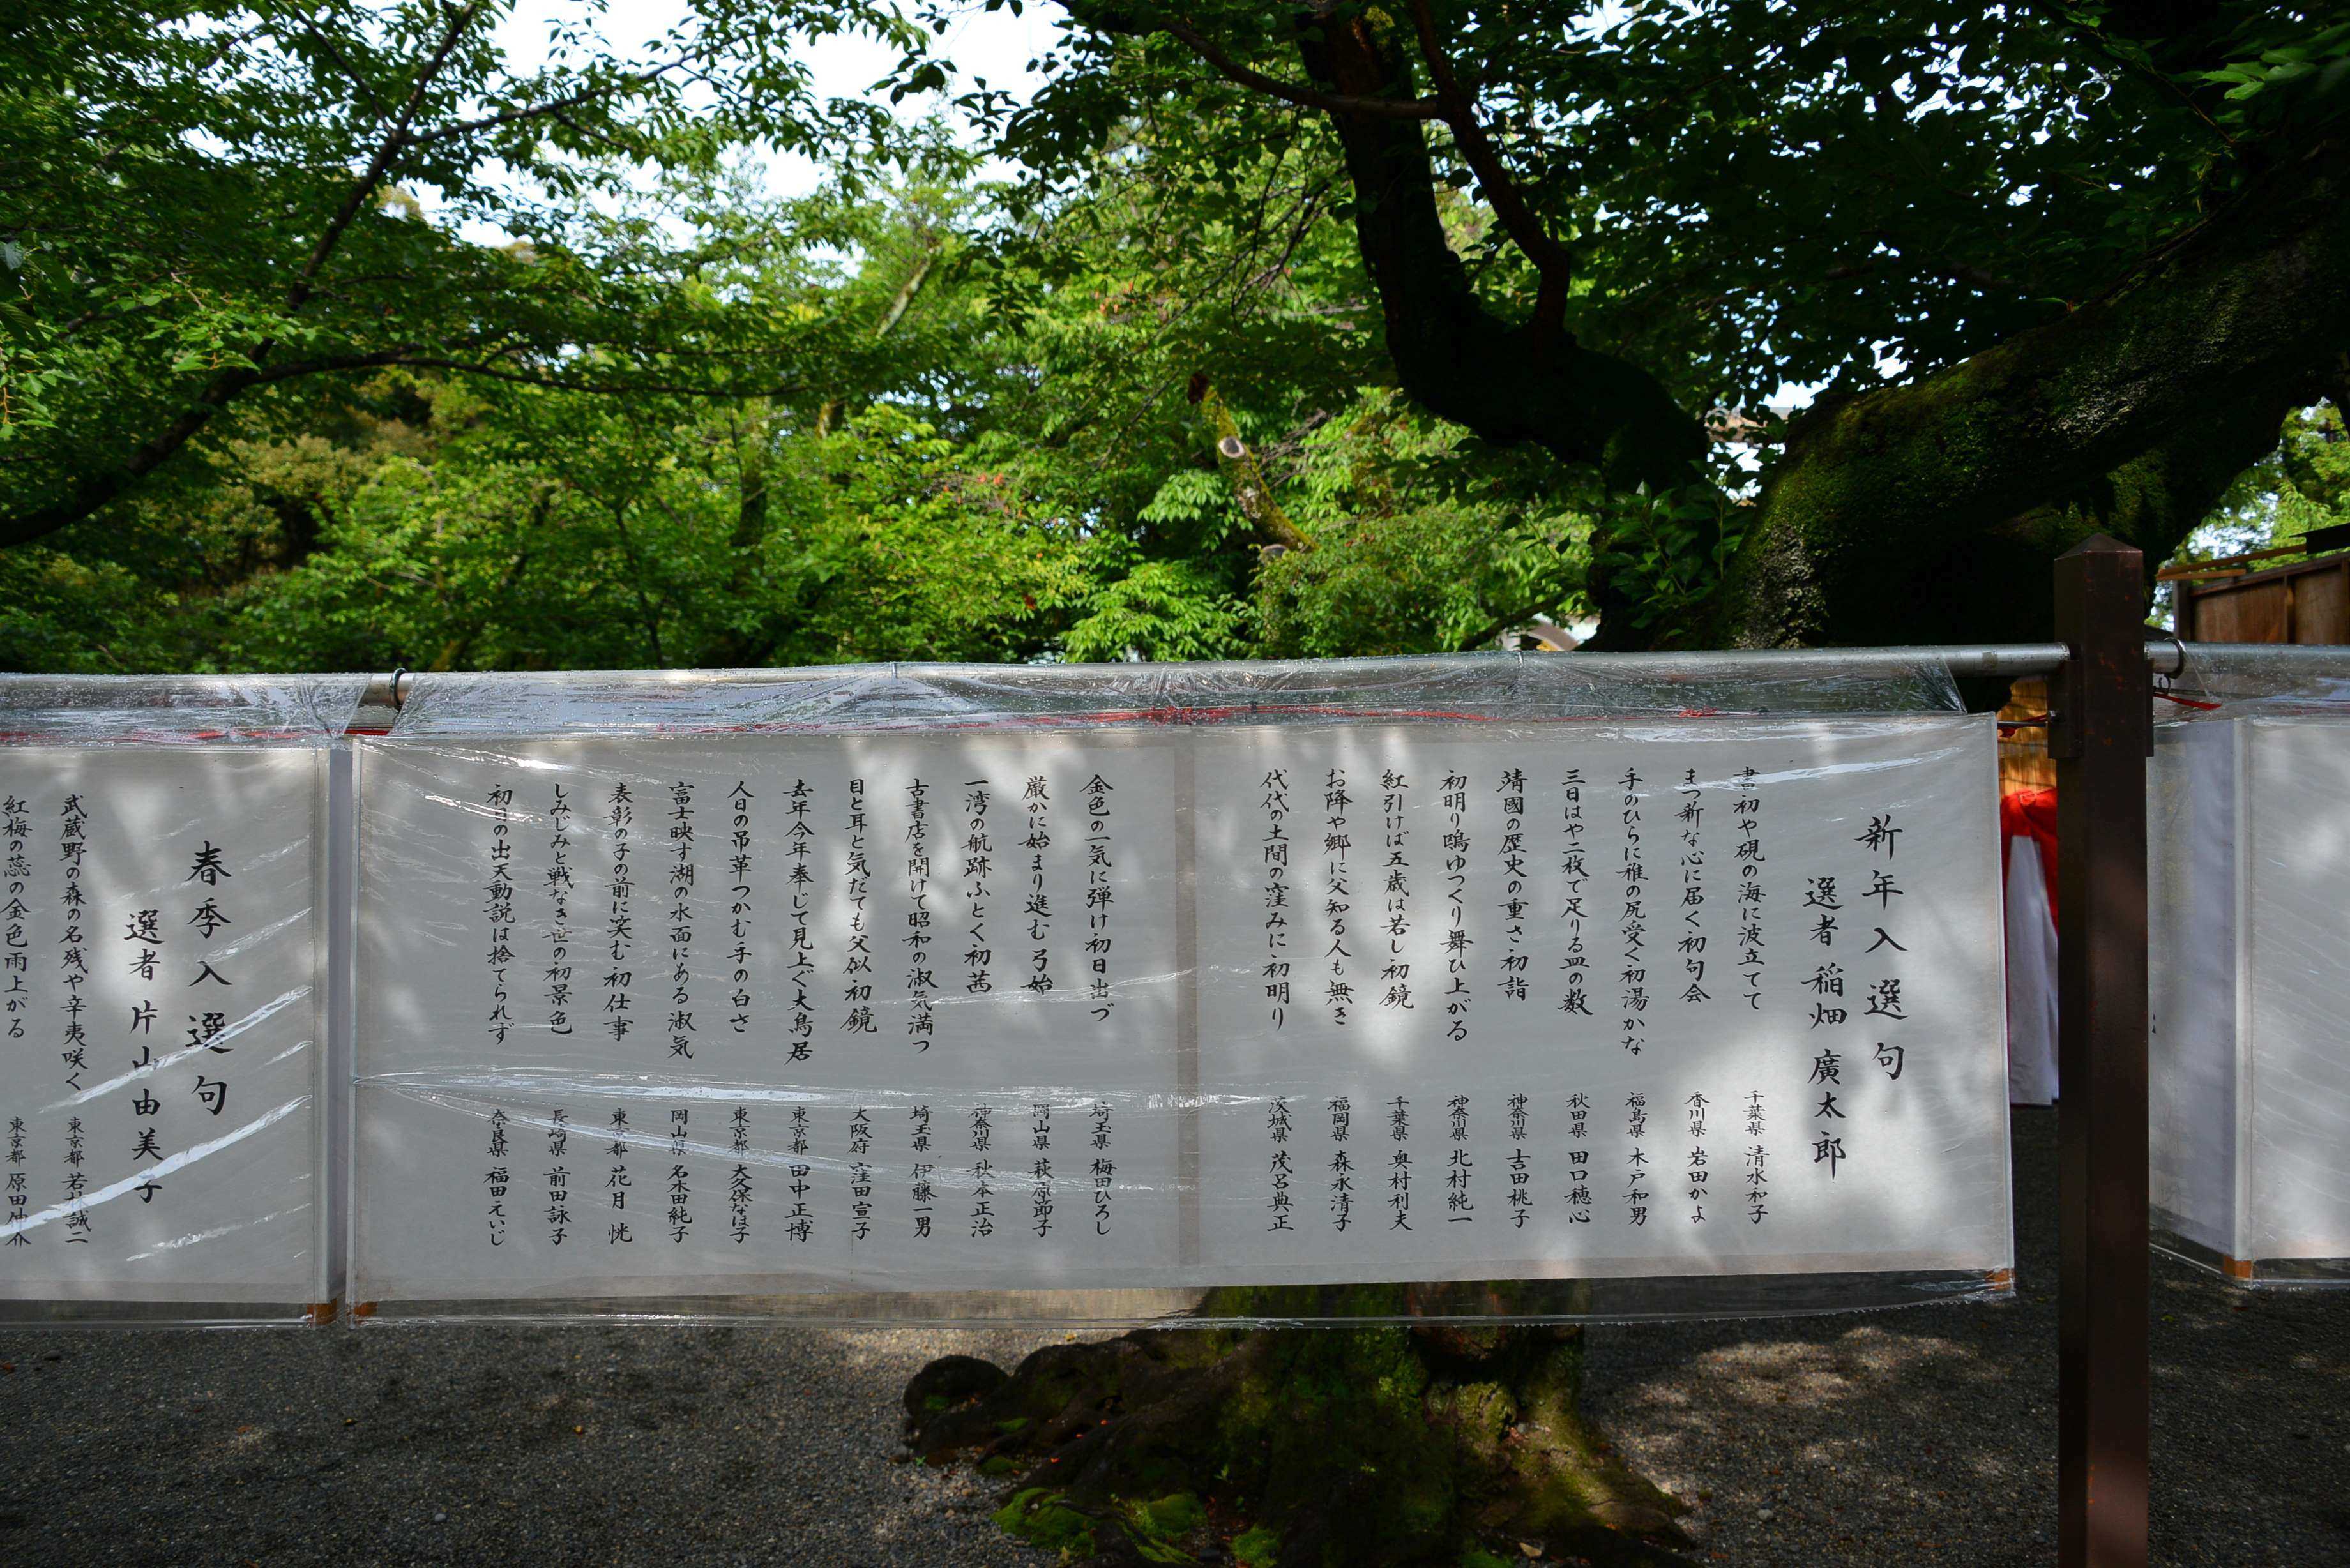 新年入選句
選者 稲畑 廣太郎
書初や硯の海に波立てて 千葉県 清水和子
まつ新な心に届く初句会 香川県 岩田かよ
手のひらに稚の尻受く初湯かな 福島県 木戸和男
三日はや二枚で足りる皿の数 秋田県 田口穂心
靖國の歴史の重さ初詣 神奈川県 吉田桃子
初明り鴎ゆつくり舞ひ上がる 神奈川県 北村純一
紅引けば五歳は若し初鏡 千葉県 奥村利夫
お降や郷に父知る人も無き 福岡県 森永清子
代代の土間の窪みに初明り 茨城県 茂呂典正
金色の一気に弾け初日出づ 埼玉県 梅田ひろし
厳かに始まり進む弓始 岡山県 萩原節子
一湾の航跡ふとく初茜 神奈川県 秋本正治
古書店を開けて昭和の淑気満つ 埼玉県 伊藤一男
目と耳と気だても父似初鏡 大阪府 窪田宣子
去年今年奉じて見上ぐ大鳥居 東京都 田中正博
人日の吊革つかむ手の白さ 東京都 大久保なほ子
富士映す湖の水面にある淑気 岡山県 名木田純子
表彰の子の前に笑む初仕事 東京都 花月 恍
しみじみと戦なき世の初景色 長崎県 前田詠子
初日の出天動説は捨てられず 奈良県 福田えいじ
春季入選句
選者 片山由美子
武蔵野の森の名残や辛夷咲く 東京都 若林誠二
紅梅の蕊の金色雨上がる 東京都 原田伸介